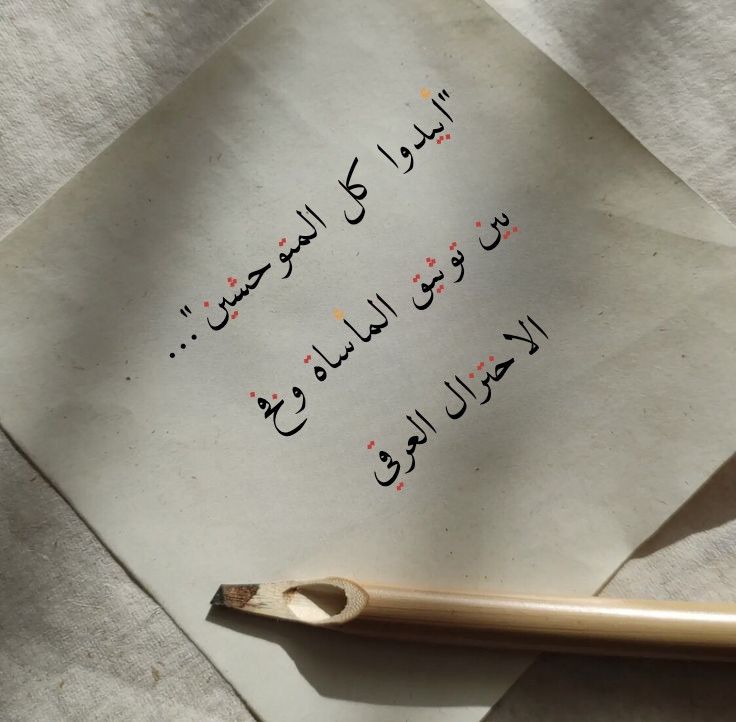 "أبيدوا كل المتوحشين"...
بين توثيق المأساة وفخ
الاختزال العرقي